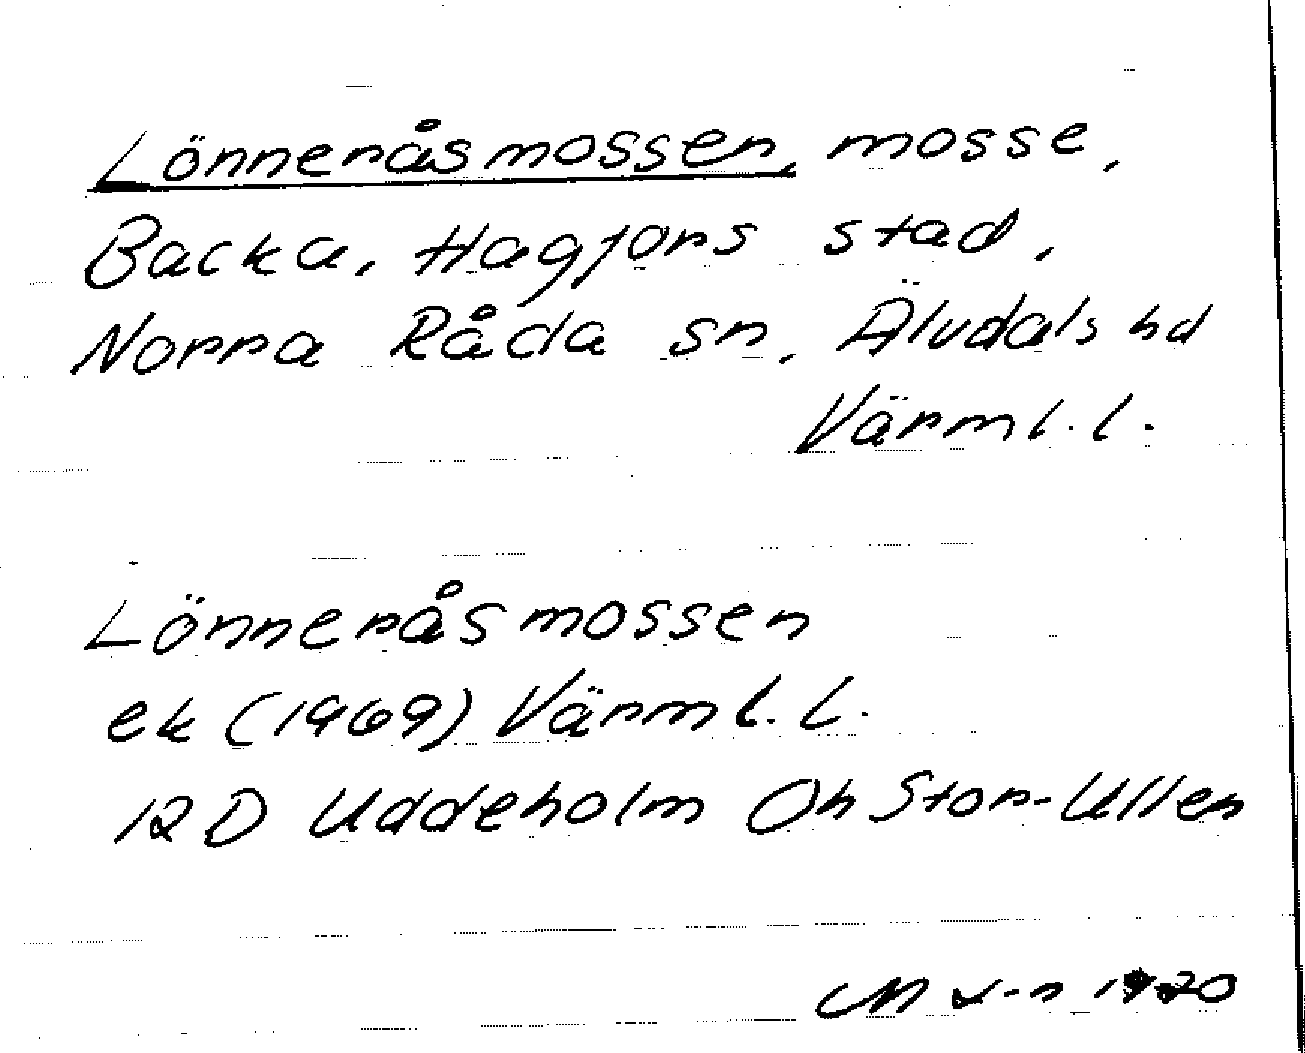 Lönneråsmossen, mosse,
Backa, Hagfors stad,
Norra Råda sn, Älvdals hd
Värml. l.
Lönneråsmossen
ek (1969) Värml. l.
12 D Uddeholm Öh Stor-Ullen
1970